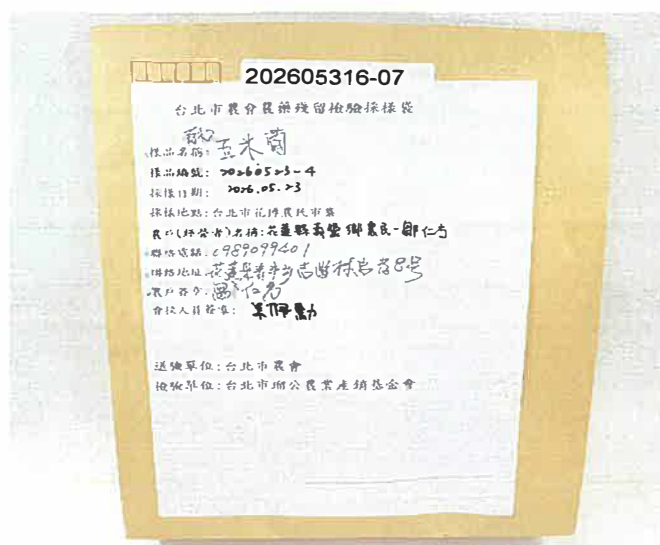 202605316-07
台北市農會農藥殘留檢驗採樣袋
樣品名稱: 玉米筍
樣品編號: 20260523-4
採樣日期: 2026.05.23
採樣地點:台北市花博農民市集
農戶(經營者)名稱:花蓮縣壽豐鄉農民-鄒仁方
聯絡電話: 0989099401
聯絡地址: 花蓮縣壽豐鄉志學村
農戶簽名: 仁方
會採人員簽章:
送驗單位:台北市農會
檢驗單位:台北市瑠公農業產銷基金會